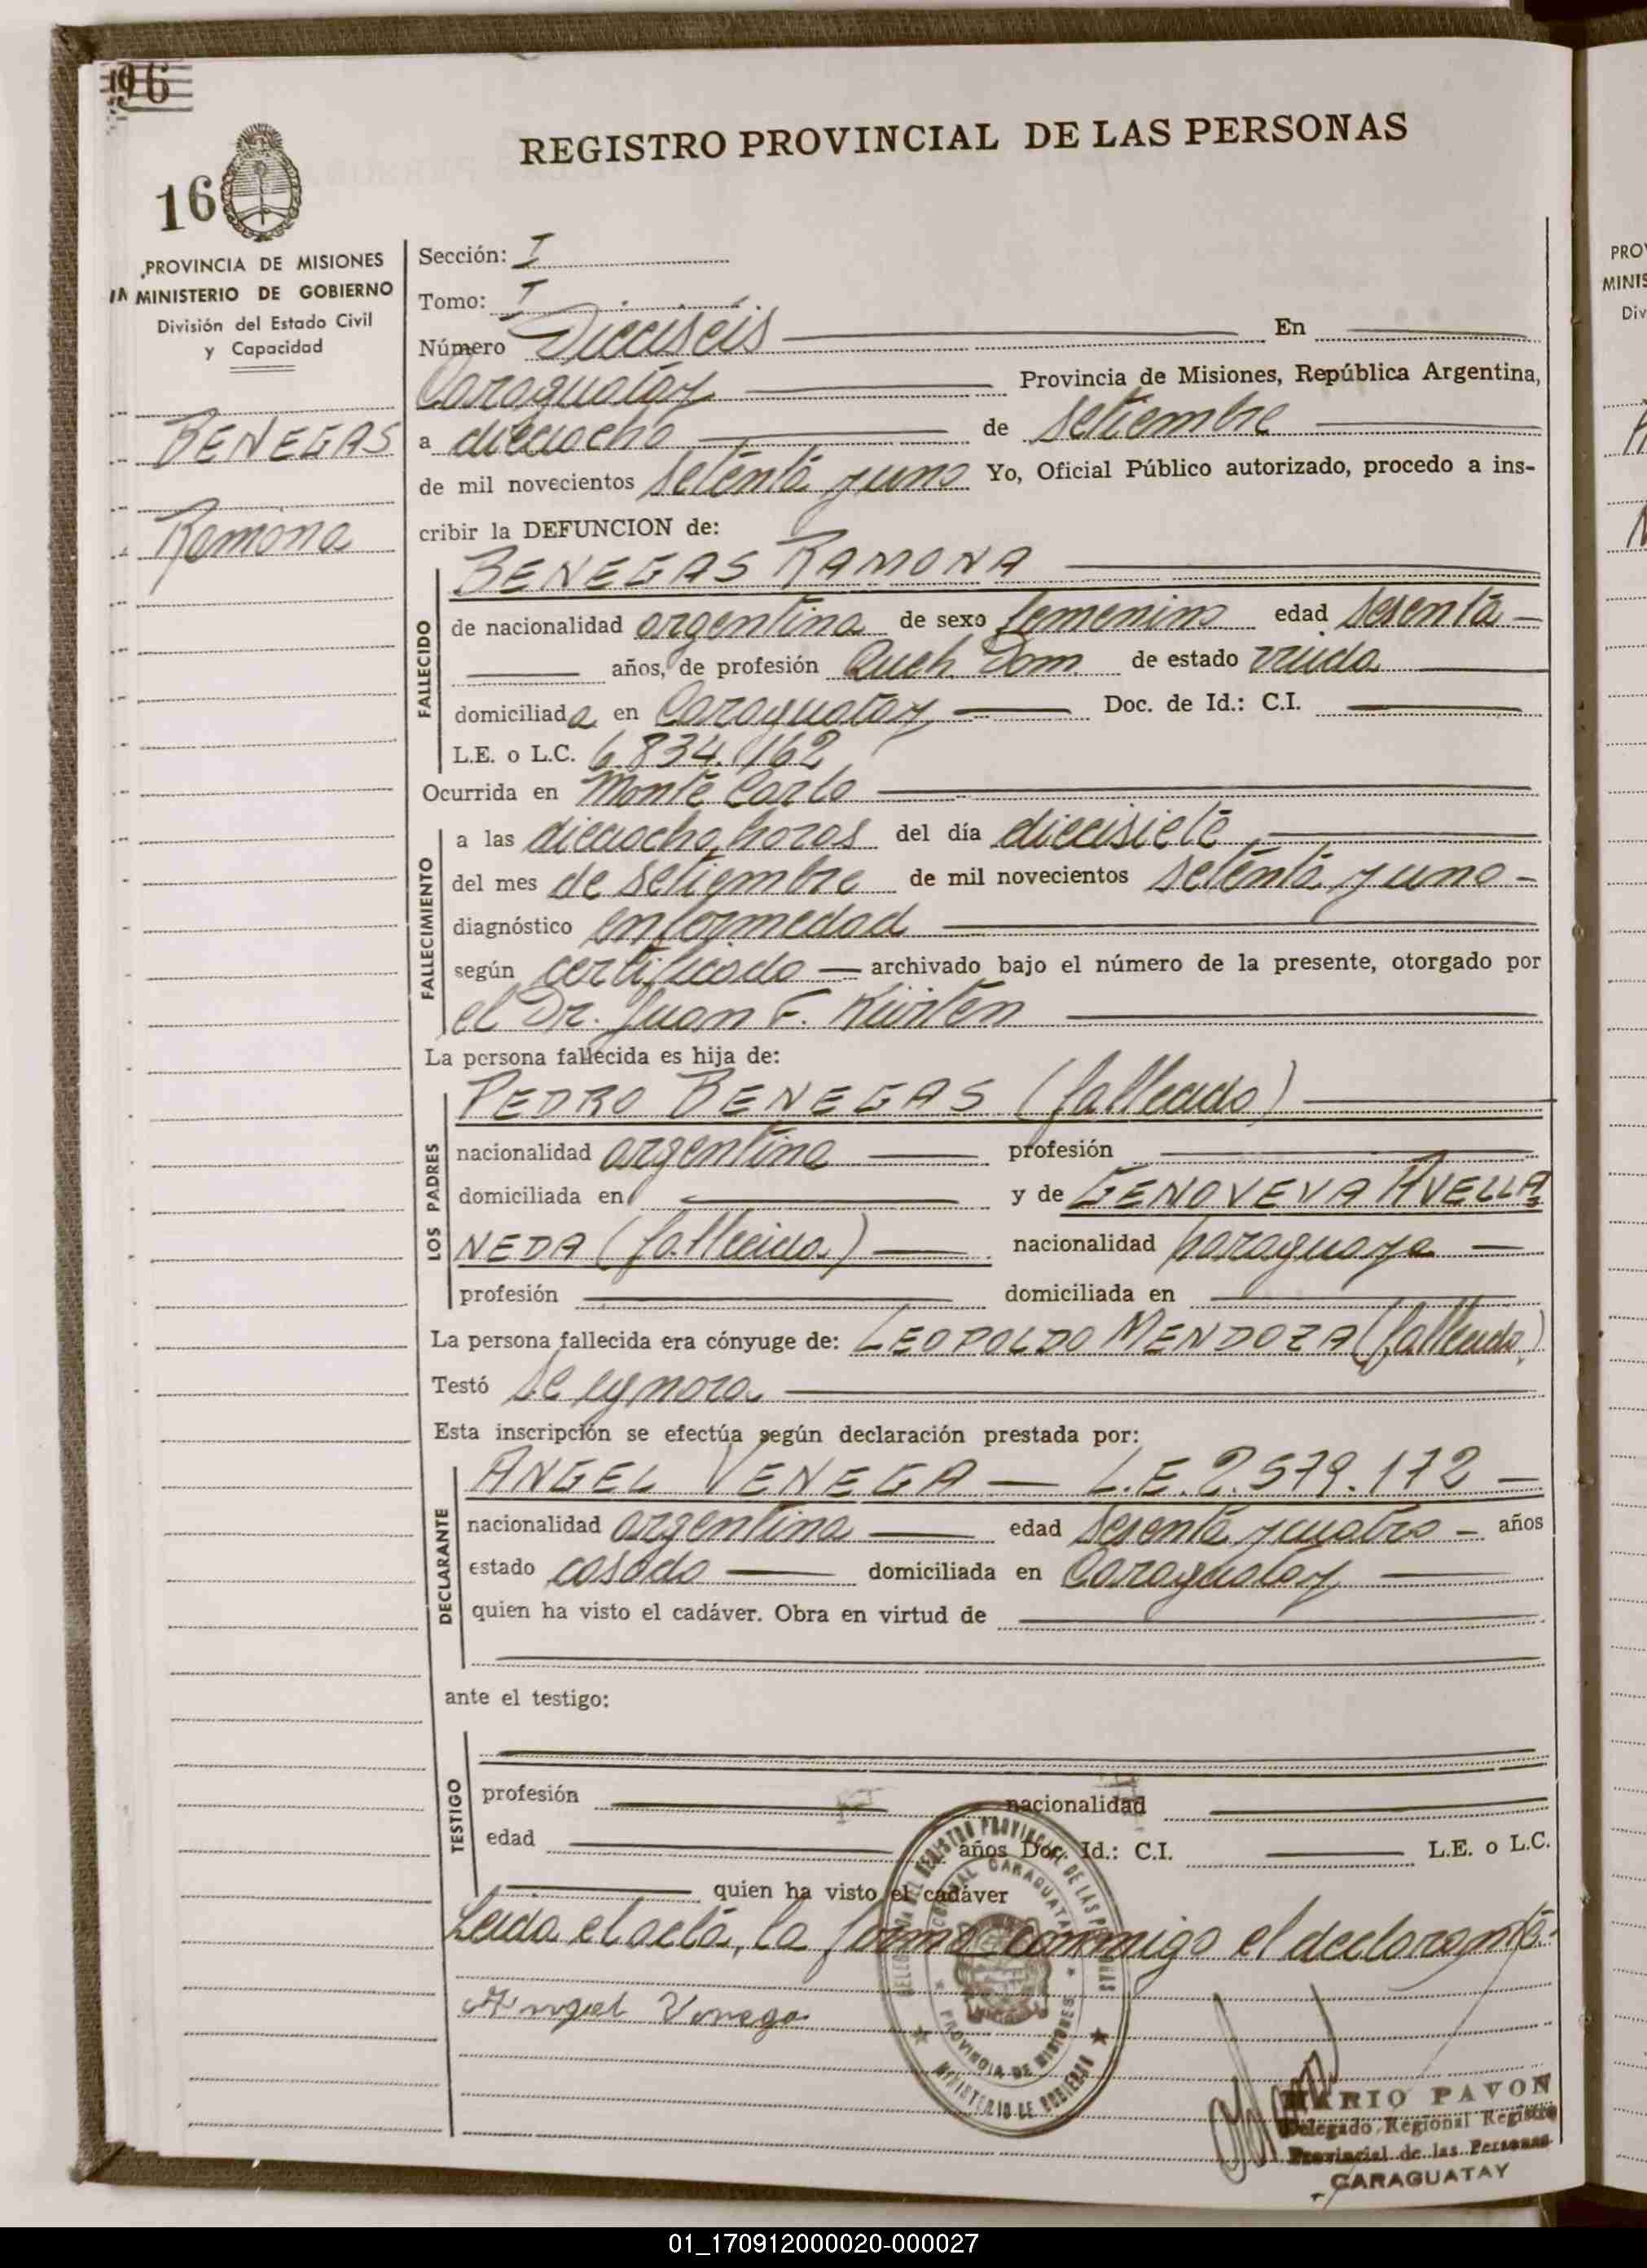 196
16
REGISTRO PROVINCIAL DE LAS PERSONAS
PROVINCIA DE MISIONES
MINISTERIO DE GOBIERNO
División del Estado Civil
y Capacidad
BENEGAS
Ramona
Sección: I
Tomo: I
Número Dieciséis En
Caraguatay Provincia de Misiones, República Argentina,
a dieciocho de setiembre
de mil novecientos setenta y uno Yo, Oficial Público autorizado, procedo a ins-
cribir la DEFUNCION de:
FALLECIDO
BENEGAS RAMONA
de nacionalidad argentina de sexo femenino edad sesenta
años, de profesión Queh. Dom. de estado viuda
domiciliada en Caraguatay Doc. de Id.: C.I.
L.E. o L.C. 6.834.162
Ocurrida en Monte Carlo
FALLECIMIENTO
a las dieciocho horas del día diecisiete
del mes de setiembre de mil novecientos setenta y uno
diagnóstico enfermedad
según certificado archivado bajo el número de la presente, otorgado por
el Dr. Juan F. Kürten
La persona fallecida es hija de:
LOS PADRES
PEDRO BENEGAS (fallecido)
nacionalidad argentina profesión
domiciliada en y de GENOVEVA AVELLA
NEDA (fallecida) nacionalidad paraguaya
profesión domiciliada en
La persona fallecida era cónyuge de: LEOPOLDO MENDOZA (fallecido)
Testó se ignora
Esta inscripción se efectúa según declaración prestada por:
DECLARANTE
ANGEL VENEGA — L.E. 2.579.172 —
nacionalidad argentina edad sesenta y cuatro años
estado casado domiciliada en Caraguatay
quien ha visto el cadáver. Obra en virtud de
ante el testigo:
TESTIGO
profesión nacionalidad
edad años Doc. Id.: C.I. L.E. o L.C.
quien ha visto el cadáver
Leida el acta, la firma conmigo el declarante.
Angel Venega
REGISTRO PROVINCIAL DE LAS PERSONAS
CARAGUATAY
PROVINCIA DE MISIONES
MINISTERIO DE GOBIERNO
MARIO PAVON
Delegado Regional Registro
Provincial de las Personas
CARAGUATAY
01_170912000020-000027